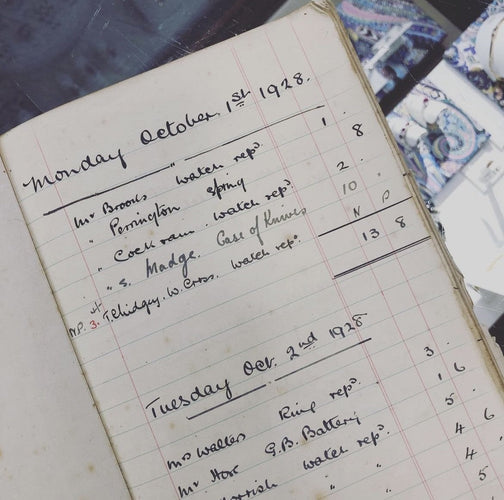 Monday October 1st 1928.
Mr Brooks watch repd. 1 8
" Perrington Spring 2 .
" Cockram. watch repd. 10 "
" S. Madge. Case of Knives N P
N.P. 3. T. Chidgey. W. Cross. watch repd. 13 8
Tuesday Oct. 2nd 1928
Mrs Walles Ring repd. 3 .
Mr Hox G.B. Battery 1 6
watch repd. 5 .
" " 4 6
4
5